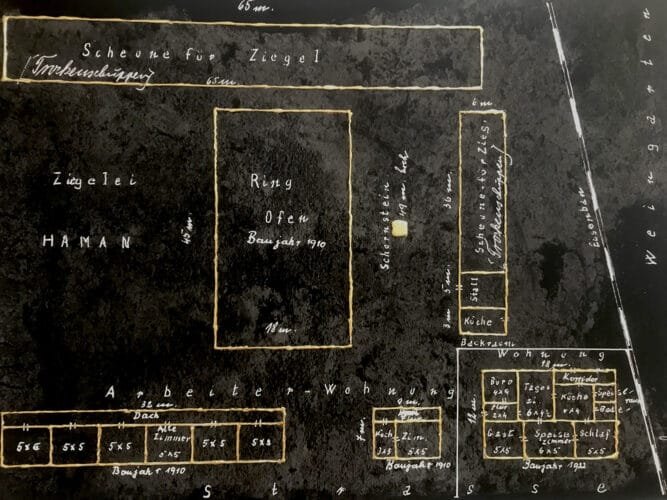 65 m.
Scheune für Ziegel
(Trockenschuppen)
65 m.
Weingarten
6 m
Scheune für Zieg.
(Trockenschuppen)
36 m.
Ziegelei
HAMAN
Ring
Ofen
Baujahr 1910
45 m.
18 m.
Schornstein
49 m hoch
5 m.
Stall
3 m
Küche
Backraum
Wohnung
18 m.
12 m.
Büro
4x4
Tages
Zi.
6x4½
Korridor
Küche
4x4
Speis
Bad
Flur
2x4
Gast
5x5
Speise
zimmer
6x5
Schlaf
5x5
Baujahr 1922
Arbeiter-Wohnung
32 m.
Dach
5x6
5x5
5x5
Alle
Zimmer
5x5
5x5
5x3
Baujahr 1910
8 m.
7 m.
Küch
3x5
Zim.
5x5
Baujahr 1910
Strasse